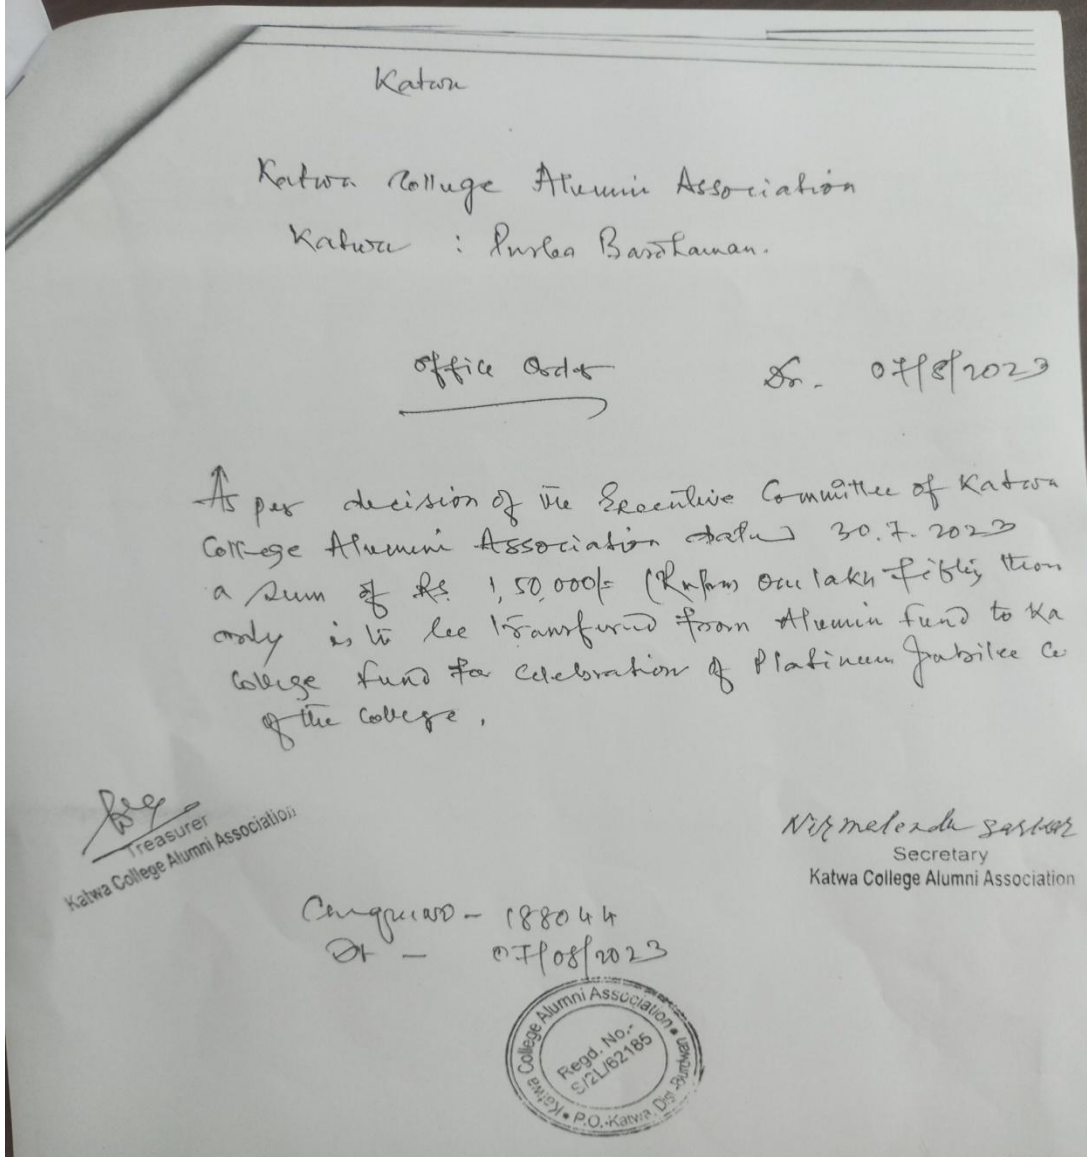 Katwa
Katwa College Alumni Association
Katwa : Purba Bardhaman.
Office Order
Dt. 07/8/2023
As per decision of the Executive Committee of Katwa
College Alumni Association dated 30.7.2023
a sum of Rs. 1,50,000/- (Rupees One lakh fifty thou
only is to be transferred from Alumni fund to Ka
College fund for celebration of Platinum Jubilee Ce
of the College.
Treasurer
Katwa College Alumni Association
Nirmalendu Sarkar
Secretary
Katwa College Alumni Association
Cheque No - 188044
Dt - 07/08/2023
Katwa College Alumni Association • P.O.-Katwa, Dist.-Burdwan •
Regd. No.-
S/2L/62185